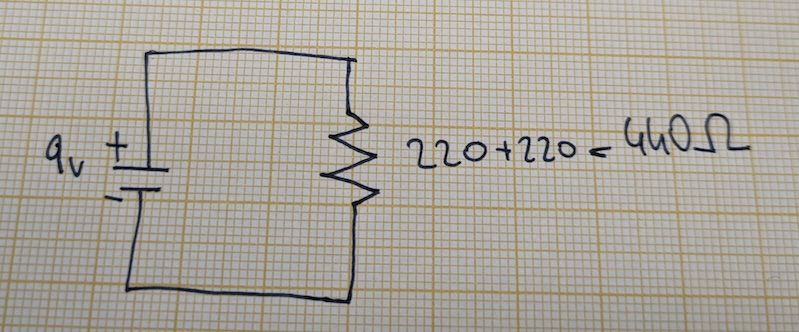 9v
+
-
220+220 = 440Ω